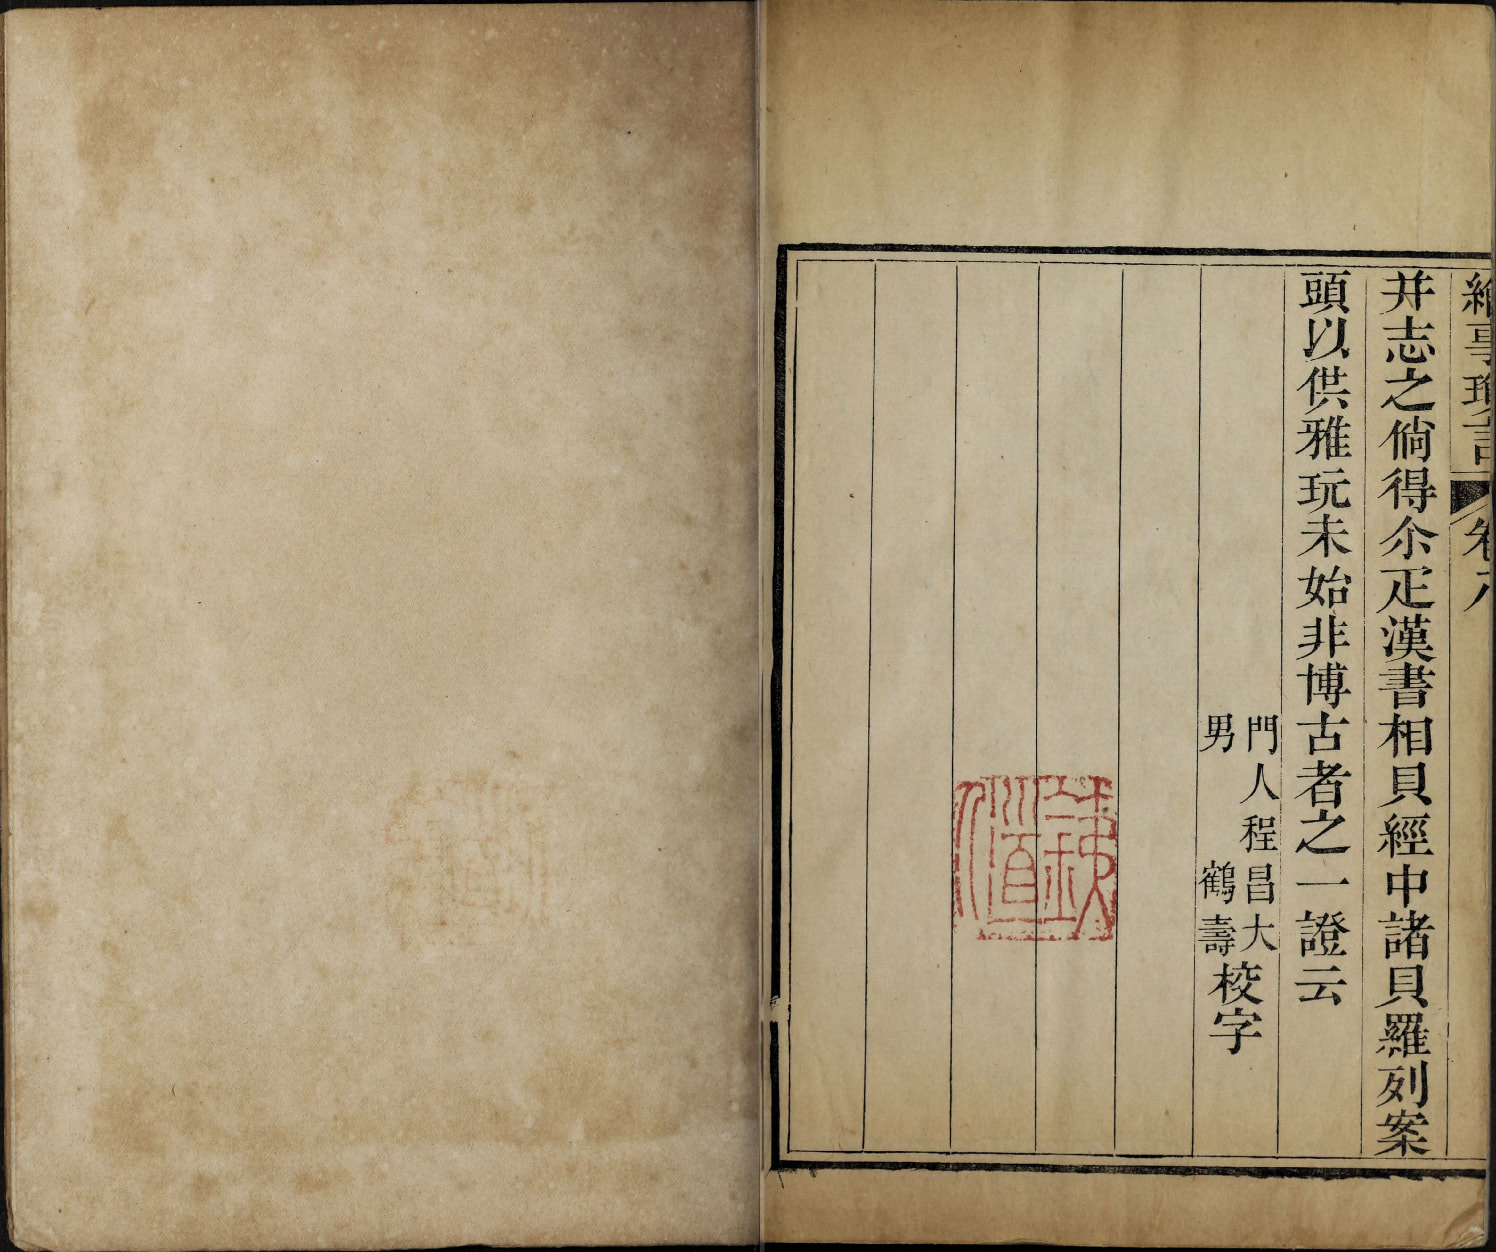 繪事瑣言 卷八
并志之倘得尒疋漢書相貝經中諸貝羅列案
頭以供雅玩未始非博古者之一證云
門人程昌大
男 鶴壽
校字